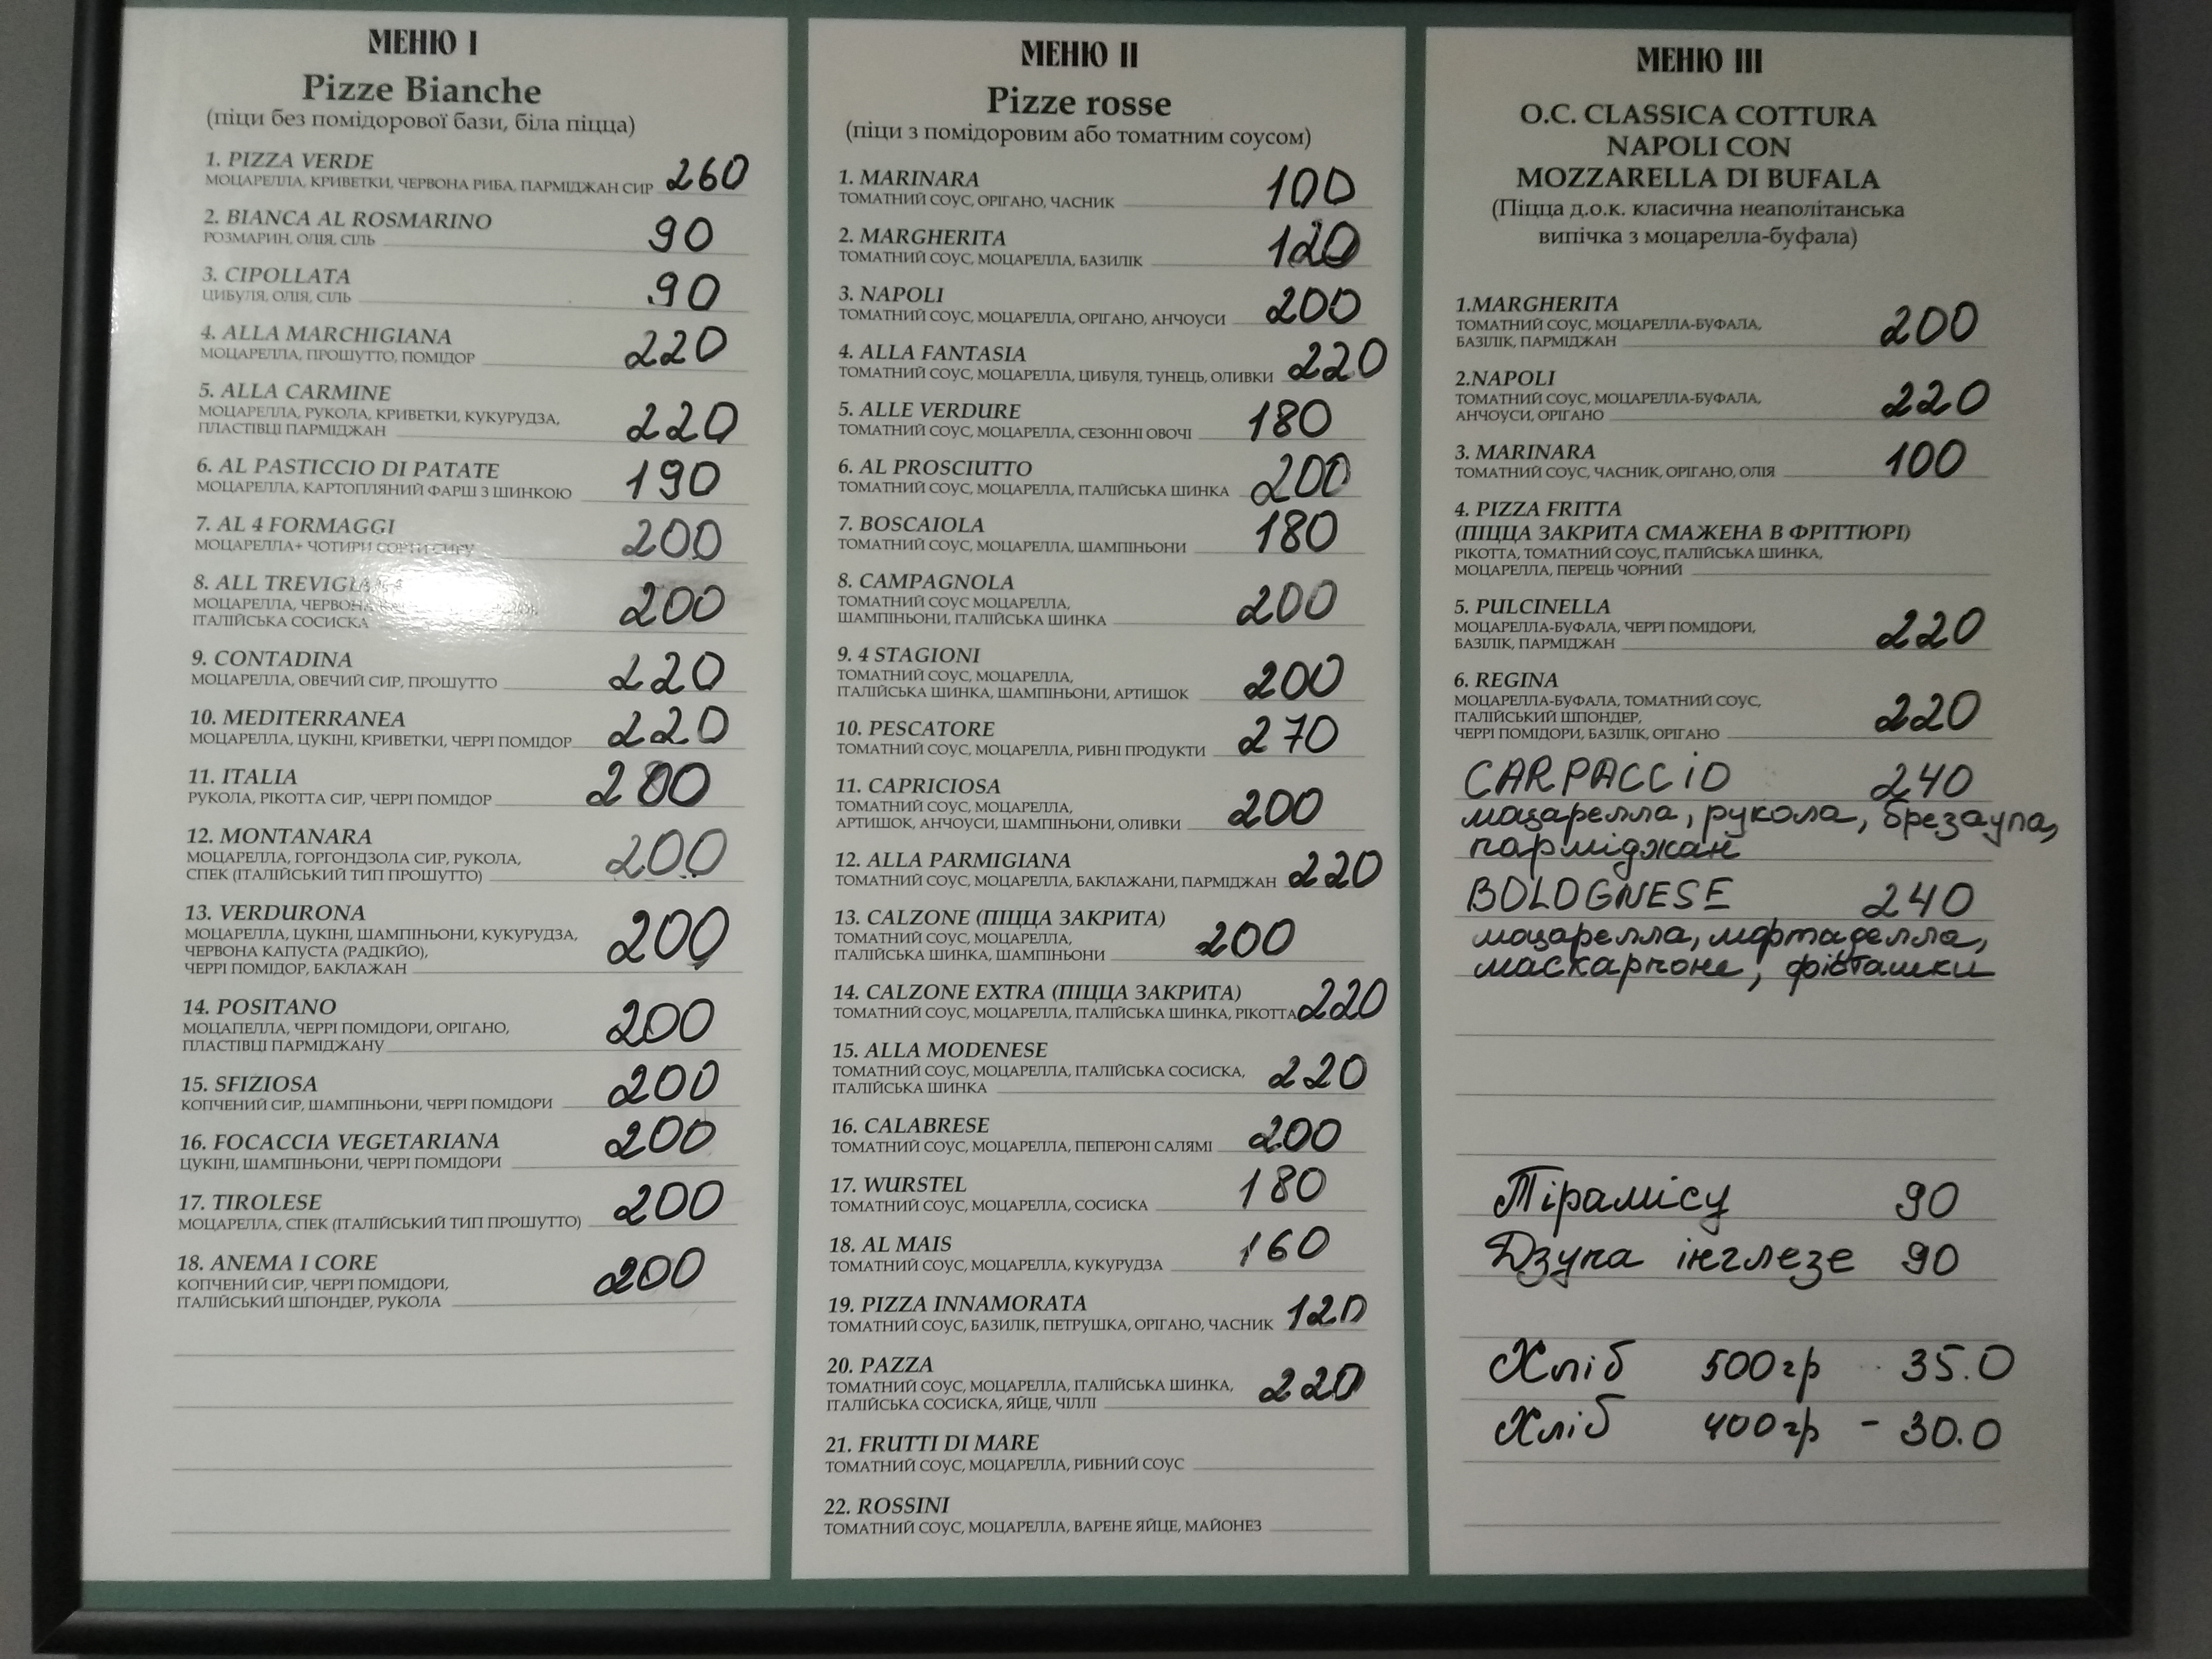 МЕНЮ I
Pizze Bianche
(піци без помідорової бази, біла піцца)
1. PIZZA VERDE
МОЦАРЕЛЛА, КРИВЕТКИ, ЧЕРВОНА РИБА, ПАРМІДЖАН СИР 260
2. BIANCA AL ROSMARINO
РОЗМАРИН, ОЛІЯ, СІЛЬ 90
3. CIPOLLATA
ЦИБУЛЯ, ОЛІЯ, СІЛЬ 90
4. ALLA MARCHIGIANA
МОЦАРЕЛЛА, ПРОШУТТО, ПОМІДОР 220
5. ALLA CARMINE
МОЦАРЕЛЛА, РУКОЛА, КРИВЕТКИ, КУКУРУДЗА,
ПЛАСТІВЦІ ПАРМІДЖАН 220
6. AL PASTICCIO DI PATATE
МОЦАРЕЛЛА, КАРТОПЛЯНИЙ ФАРШ З ШИНКОЮ 190
7. AL 4 FORMAGGI
МОЦАРЕЛЛА+ ЧОТИРИ СОРТИ СИРУ 200
8. ALL
МОЦАРЕЛЛА,
ІТАЛІЙСЬКА СОСИСКА 200
9. CONTADINA
МОЦАРЕЛЛА, ОВЕЧИЙ СИР, ПРОШУТТО 220
10. MEDITERRANEA
МОЦАРЕЛЛА, ЦУКІНІ, КРИВЕТКИ, ЧЕРРІ ПОМІДОР 220
11. ITALIA
РУКОЛА, РІКОТТА СИР, ЧЕРРІ ПОМІДОР 200
12. MONTANARA
МОЦАРЕЛЛА, ГОРГОНДЗОЛА СИР, РУКОЛА,
СПЕК (ІТАЛІЙСЬКИЙ ТИП ПРОШУТТО) 200
13. VERDURONA
МОЦАРЕЛЛА, ЦУКІНІ, ШАМПІНЬОНИ, КУКУРУДЗА,
ЧЕРВОНА КАПУСТА (РАДІКЙО),
ЧЕРРІ ПОМІДОР, БАКЛАЖАН 200
14. POSITANO
МОЦАПЕЛЛА, ЧЕРРІ ПОМІДОРИ, ОРІГАНО,
ПЛАСТІВЦІ ПАРМІДЖАНУ 200
15. SFIZIOSA
КОПЧЕНИЙ СИР, ШАМПІНЬОНИ, ЧЕРРІ ПОМІДОРИ 200
16. FOCACCIA VEGETARIANA
ЦУКІНІ, ШАМПІНЬОНИ, ЧЕРРІ ПОМІДОРИ 200
17. TIROLESE
МОЦАРЕЛЛА, СПЕК (ІТАЛІЙСЬКИЙ ТИП ПРОШУТТО) 200
18. ANEMA I CORE
КОПЧЕНИЙ СИР, ЧЕРРІ ПОМІДОРИ,
ІТАЛІЙСЬКИЙ ШПОНДЕР, РУКОЛА 200
МЕНЮ II
Pizze rosse
(піци з помідоровим або томатним соусом)
1. MARINARA
ТОМАТНИЙ СОУС, ОРІГАНО, ЧАСНИК 100
2. MARGHERITA
ТОМАТНИЙ СОУС, МОЦАРЕЛЛА, БАЗИЛІК 120
3. NAPOLI
ТОМАТНИЙ СОУС, МОЦАРЕЛЛА, ОРІГАНО, АНЧОУСИ 200
4. ALLA FANTASIA
ТОМАТНИЙ СОУС, МОЦАРЕЛЛА, ЦИБУЛЯ, ТУНЕЦЬ, ОЛИВКИ 220
5. ALLE VERDURE
ТОМАТНИЙ СОУС, МОЦАРЕЛЛА, СЕЗОННІ ОВОЧІ 180
6. AL PROSCIUTTO
ТОМАТНИЙ СОУС, МОЦАРЕЛЛА, ІТАЛІЙСЬКА ШИНКА 200
7. BOSCAIOLA
ТОМАТНИЙ СОУС, МОЦАРЕЛЛА, ШАМПІНЬОНИ 180
8. CAMPAGNOLA
ТОМАТНИЙ СОУС МОЦАРЕЛЛА,
ШАМПІНЬОНИ, ІТАЛІЙСЬКА ШИНКА 200
9. 4 STAGIONI
ТОМАТНИЙ СОУС, МОЦАРЕЛЛА,
ІТАЛІЙСЬКА ШИНКА, ШАМПІНЬОНИ, АРТИШОК 200
10. PESCATORE
ТОМАТНИЙ СОУС, МОЦАРЕЛЛА, РИБНІ ПРОДУКТИ 270
11. CAPRICIOSA
ТОМАТНИЙ СОУС, МОЦАРЕЛЛА,
АРТИШОК, АНЧОУСИ, ШАМПІНЬОНИ, ОЛИВКИ 200
12. ALLA PARMIGIANA
ТОМАТНИЙ СОУС, МОЦАРЕЛЛА, БАКЛАЖАНИ, ПАРМІДЖАН 220
13. CALZONE (ПІЦЦА ЗАКРИТА)
ТОМАТНИЙ СОУС, МОЦАРЕЛЛА,
ІТАЛІЙСЬКА ШИНКА, ШАМПІНЬОНИ 200
14. CALZONE EXTRA (ПІЦЦА ЗАКРИТА)
ТОМАТНИЙ СОУС, МОЦАРЕЛЛА, ІТАЛІЙСЬКА ШИНКА, РІКОТТА 220
15. ALLA MODENESE
ТОМАТНИЙ СОУС, МОЦАРЕЛЛА, ІТАЛІЙСЬКА СОСИСКА,
ІТАЛІЙСЬКА ШИНКА 220
16. CALABRESE
ТОМАТНИЙ СОУС, МОЦАРЕЛЛА, ПЕПЕРОНІ САЛЯМІ 200
17. WURSTEL
ТОМАТНИЙ СОУС, МОЦАРЕЛЛА, СОСИСКА 180
18. AL MAIS
ТОМАТНИЙ СОУС, МОЦАРЕЛЛА, КУКУРУДЗА 160
19. PIZZA INNAMORATA
ТОМАТНИЙ СОУС, БАЗИЛІК, ПЕТРУШКА, ОРІГАНО, ЧАСНИК 120
20. PAZZA
ТОМАТНИЙ СОУС, МОЦАРЕЛЛА, ІТАЛІЙСЬКА ШИНКА,
ІТАЛІЙСЬКА СОСИСКА, ЯЙЦЕ, ЧІЛЛІ 220
21. FRUTTI DI MARE
ТОМАТНИЙ СОУС, МОЦАРЕЛЛА, РИБНИЙ СОУС
22. ROSSINI
ТОМАТНИЙ СОУС, МОЦАРЕЛЛА, ВАРЕНЕ ЯЙЦЕ, МАЙОНЕЗ
МЕНЮ III
O.C. CLASSICA COTTURA
NAPOLI CON
MOZZARELLA DI BUFALA
(Піцца д.о.к. класична неаполітанська
випічка з моцарелла-буфала)
1.MARGHERITA
ТОМАТНИЙ СОУС, МОЦАРЕЛЛА-БУФАЛА,
БАЗІЛІК, ПАРМІДЖАН 200
2.NAPOLI
ТОМАТНИЙ СОУС, МОЦАРЕЛЛА-БУФАЛА,
АНЧОУСИ, ОРІГАНО 220
3. MARINARA
ТОМАТНИЙ СОУС, ЧАСНИК, ОРІГАНО, ОЛІЯ 100
4. PIZZA FRITTA
(ПІЦЦА ЗАКРИТА СМАЖЕНА В ФРІТТЮРІ)
РІКОТТА, ТОМАТНИЙ СОУС, ІТАЛІЙСЬКА ШИНКА,
МОЦАРЕЛЛА, ПЕРЕЦЬ ЧОРНИЙ
5. PULCINELLA
МОЦАРЕЛЛА-БУФАЛА, ЧЕРРІ ПОМІДОРИ,
БАЗІЛІК, ПАРМІДЖАН 220
6. REGINA
МОЦАРЕЛЛА-БУФАЛА, ТОМАТНИЙ СОУС,
ІТАЛІЙСЬКИЙ ШПОНДЕР,
ЧЕРРІ ПОМІДОРИ, БАЗІЛІК, ОРІГАНО 220
CARPACCiO 240
моцарелла, рукола, брезаула,
парміджан
BOLOGNESE 240
моцарелла, мортаделла,
маскарпоне, фісташки
Тірамісу 90
Дзупа інглезе 90
Хліб 500гр 35.0
Хліб 400гр - 30.0